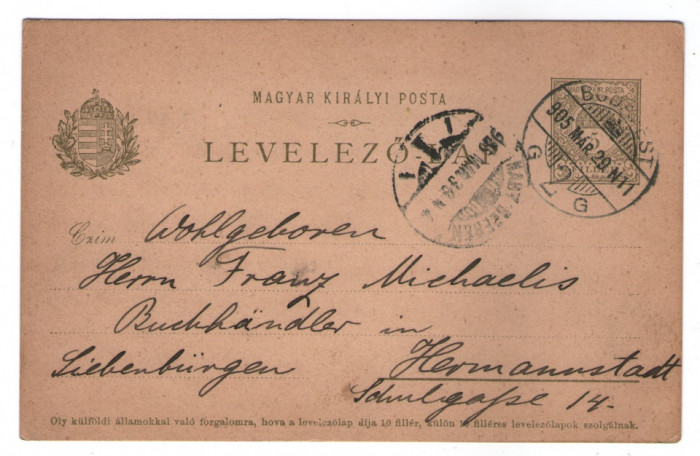 MAGYAR KIRÁLYI POSTA
LEVELEZŐ
BUDAPEST
905 MÁR 29 N11
G 7 G
Czim Wohlgeboren
Herrn Franz Michaelis
Buchhändler in
Siebenbürgen Hermannstadt
Schulgaße 14.
Oly külföldi államokkal való forgalomra, hova a levelezőlap díja 10 fillér, külön 10 filléres levelezőlapok szolgálnak.